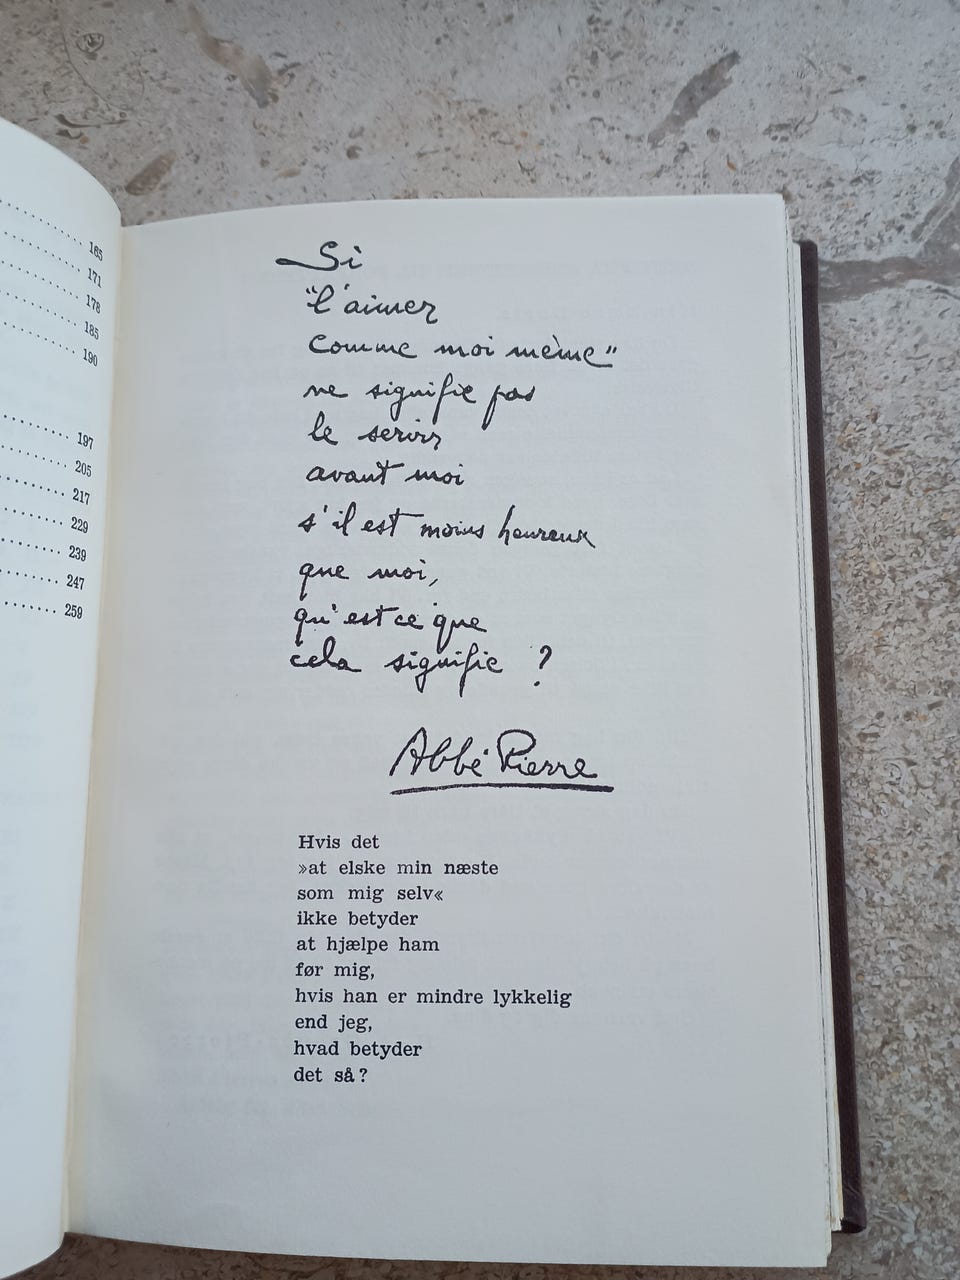 165
171
178
185
190
197
205
217
229
239
247
259
Si
"l'aimer
comme moi même"
ne signifie pas
le servir
avant moi
s'il est moins heureux
que moi,
qu'est ce que
cela signifie ?
Abbé Pierre
Hvis det
»at elske min næste
som mig selv«
ikke betyder
at hjælpe ham
før mig,
hvis han er mindre lykkelig
end jeg,
hvad betyder
det så?